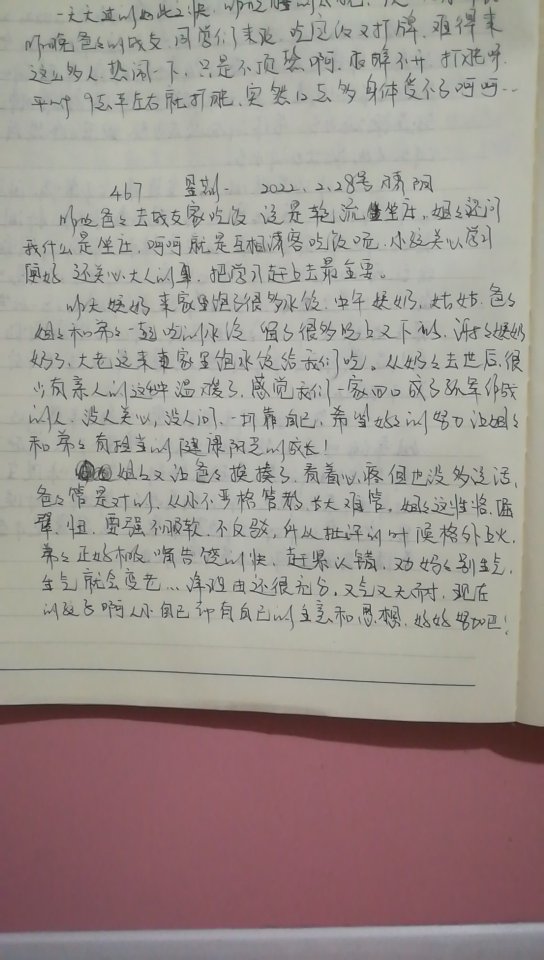 一天天过的如此之快，昨晚睡的
昨晚爸爸的战友，同学们来玩，吃完饭又打牌，难得来
这么多人，热闹一下，只是不顶熬啊，夜熬不开，打瞌呼，
平时9点半左右就打瞌，突然12点多身体受不了呵呵…
467 星期一 2022.2.28号 晴 阴
昨晚爸爸去战友家吃饭，说是轮流坐庄，姐姐还问
我什么是坐庄，呵呵就是互相请客吃饭呢，小孩关心学习
更好，还关心大人的事，把学习赶上去最重要。
昨天姨奶来家里包了很多水饺，中午姨奶，姑姑，爸爸
姐姐和弟弟一起吃的水饺，留了很多晚上又下的，谢谢姨奶
奶了，大老远来家里包水饺给我们吃。从妈妈去世后，很
少有亲人的这种温暖了，感觉我们一家四口成了孤军作战
的人，没人关心，没人问，一切靠自己，希望好好的努力让姐姐
和弟弟有担当的健康阳光的成长！
姐姐又让爸爸揍揍了，看着心疼但也没多说话，
爸爸管是对的，从小不严格管教，长大难管，姐姐这性格，倔
犟，扭，要强不服软，不反驳，每次批评的时候格外上火，
弟弟正好相反，嘴告饶的快，赶紧认错，劝妈妈别生气，
生气就会变老…净理由还很充分，又气又无奈，现在
的孩子啊人小自己都有自己的主意和思想，好好努力吧！